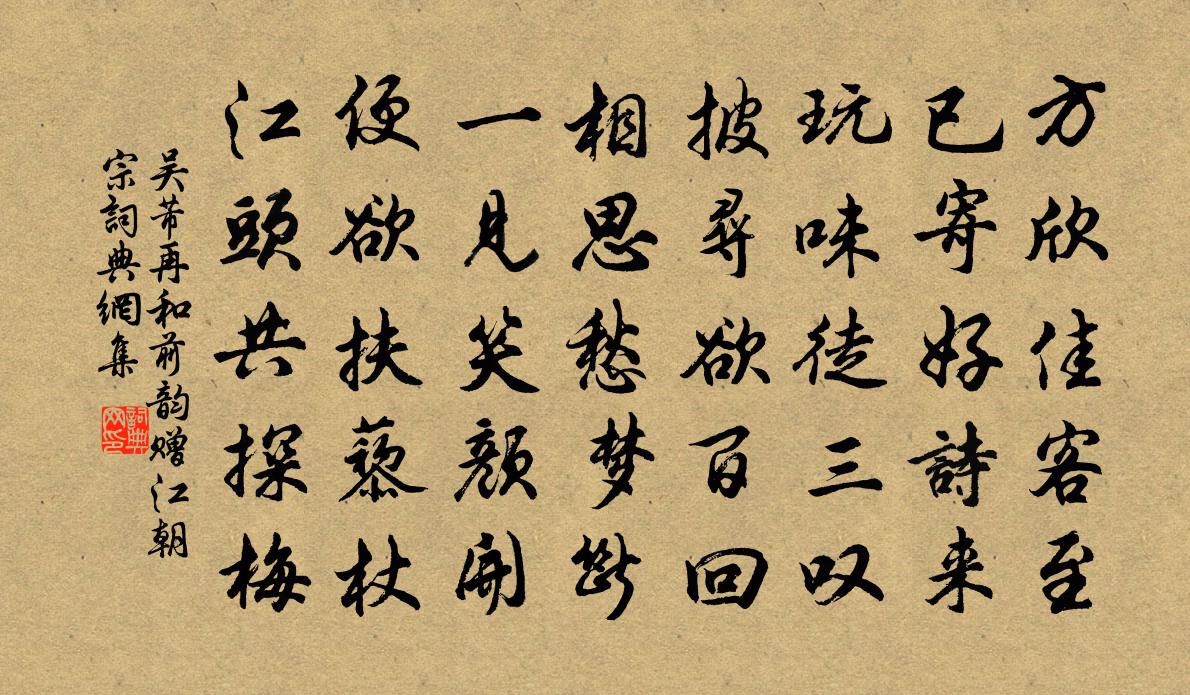 方欣佳客至
已寄好詩来
玩味徒三叹
披尋欲百回
相思愁梦斷
一見笑顔開
便欲扶藜杖
江頭共探梅
吴芾再和前韵赠江朝
宗詞典網集
詞典网印